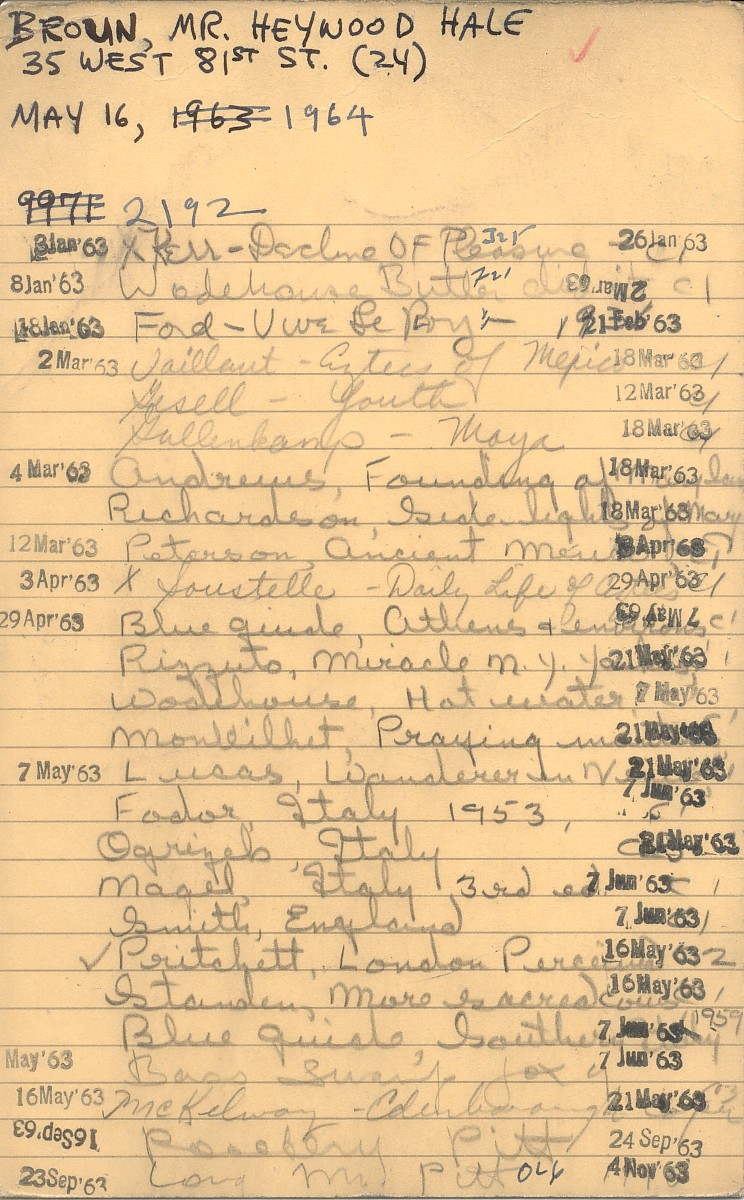 BROUN, MR. HEYWOOD HALE
35 WEST 81ST ST. (24)
MAY 16, 1963 1964
997E 2192
3Jan'63 X Kerr - Decline Of Pleasure 26Jan'63
8Jan'63 Wodehouse Butler did it 2Mar'63 c1
18Jan'63 Ford - Vive Le Roy 21Feb'63
2Mar'63 Vaillant - Aztecs of Mexico 18Mar'63
Gesell - Youth 12Mar'63
Gallenkamp - Maya 18Mar'63
4Mar'63 Andrews, Founding of Maryland 18Mar'63
Richardson, Side lights Mary 18Mar'63
12Mar'63 Peterson, Ancient Mexico 3Apr'63
3Apr'63 X Soustelle - Daily Life of Aztecs 29Apr'63
29Apr'63 Blue guide, Athens & environs 7May'63 c1
Rizzuto, Miracle N.Y. Yankees 21May'63
Wodehouse, Hot water 7May'63
Monteilhet, Praying mantises 21May'63
7May'63 Lucas, Wanderer in Venice 21May'63
Fodor, Italy 1953, 7Jun'63
Ogrizek, Italy 21May'63
Nagel, Italy 3rd ed 7Jun'63
Smith, England 7Jun'63
✓ Pritchett, London Perceived 16May'63 2
Standen, More sacred cows 16May'63
Blue guide, Southern Italy 1959 7Jun'63
May'63 Bass 7Jun'63
16May'63 McKelway - Edinborough 21May'63
16Sep'63 Rosebery Pitt 24Sep'63
23Sep'63 Long Mr. Pitt OLY 4Nov'63